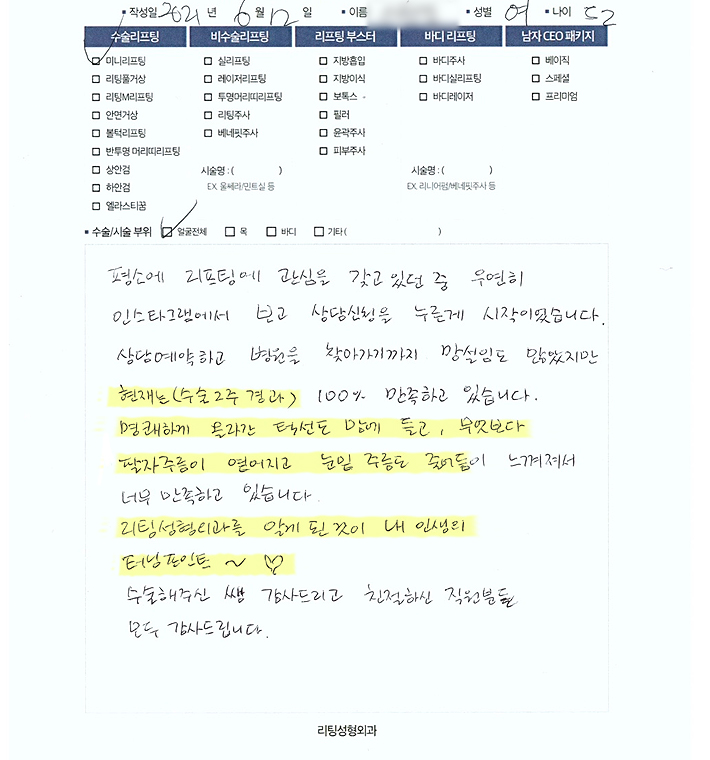 ▪ 작성일 2021 년 6 월 12 일 ▪ 이름 ▪ 성별 여 ▪ 나이 52
수술리프팅 비수술리프팅 리프팅 부스터 바디 리프팅 남자 CEO 패키지
□ 미니리프팅 □ 실리프팅 □ 지방흡입 □ 바디주사 □ 베이직
□ 리팅풀거상 □ 레이저리프팅 □ 지방이식 □ 바디실리프팅 □ 스페셜
□ 리팅M리프팅 □ 투명머리띠리프팅 □ 보톡스 □ 바디레이저 □ 프리미엄
□ 안면거상 □ 리팅주사 □ 필러
□ 볼턱리프팅 □ 베네핏주사 □ 윤곽주사
□ 반투명 머리띠리프팅 □ 피부주사
□ 상안검 시술명 : ( ) 시술명 : ( )
□ 하안검 EX. 울쎄라/민트실 등 EX. 리니어펌/베네핏주사 등
□ 엘라스티꿈
▪ 수술/시술 부위 □ 얼굴전체 □ 목 □ 바디 □ 기타 ( )
평소에 리프팅에 관심을 갖고 있던 중 우연히
인스타그램에서 보고 상담신청을 누른게 시작이었습니다.
상담예약하고 병원을 찾아가기까지 망설임도 많았지만
현재는(수술2주 경과) 100% 만족하고 있습니다.
명쾌하게 올라간 턱선도 맘에 들고, 무엇보다
팔자주름이 옅어지고 눈밑 주름도 줄어듦이 느껴져서
너무 만족하고 있습니다.
리팅성형외과를 알게 된 것이 내 인생의
터닝포인트 ~ ♡
수술해주신 쌤 감사드리고 친절하신 직원분들
모두 감사드립니다.
리팅성형외과